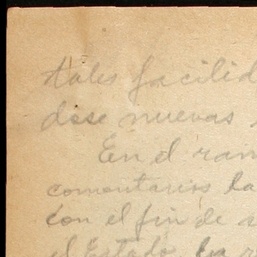 tales facilid
dese nuevas
En el ram
comentarios la
con el fin de a
el Estado, ha